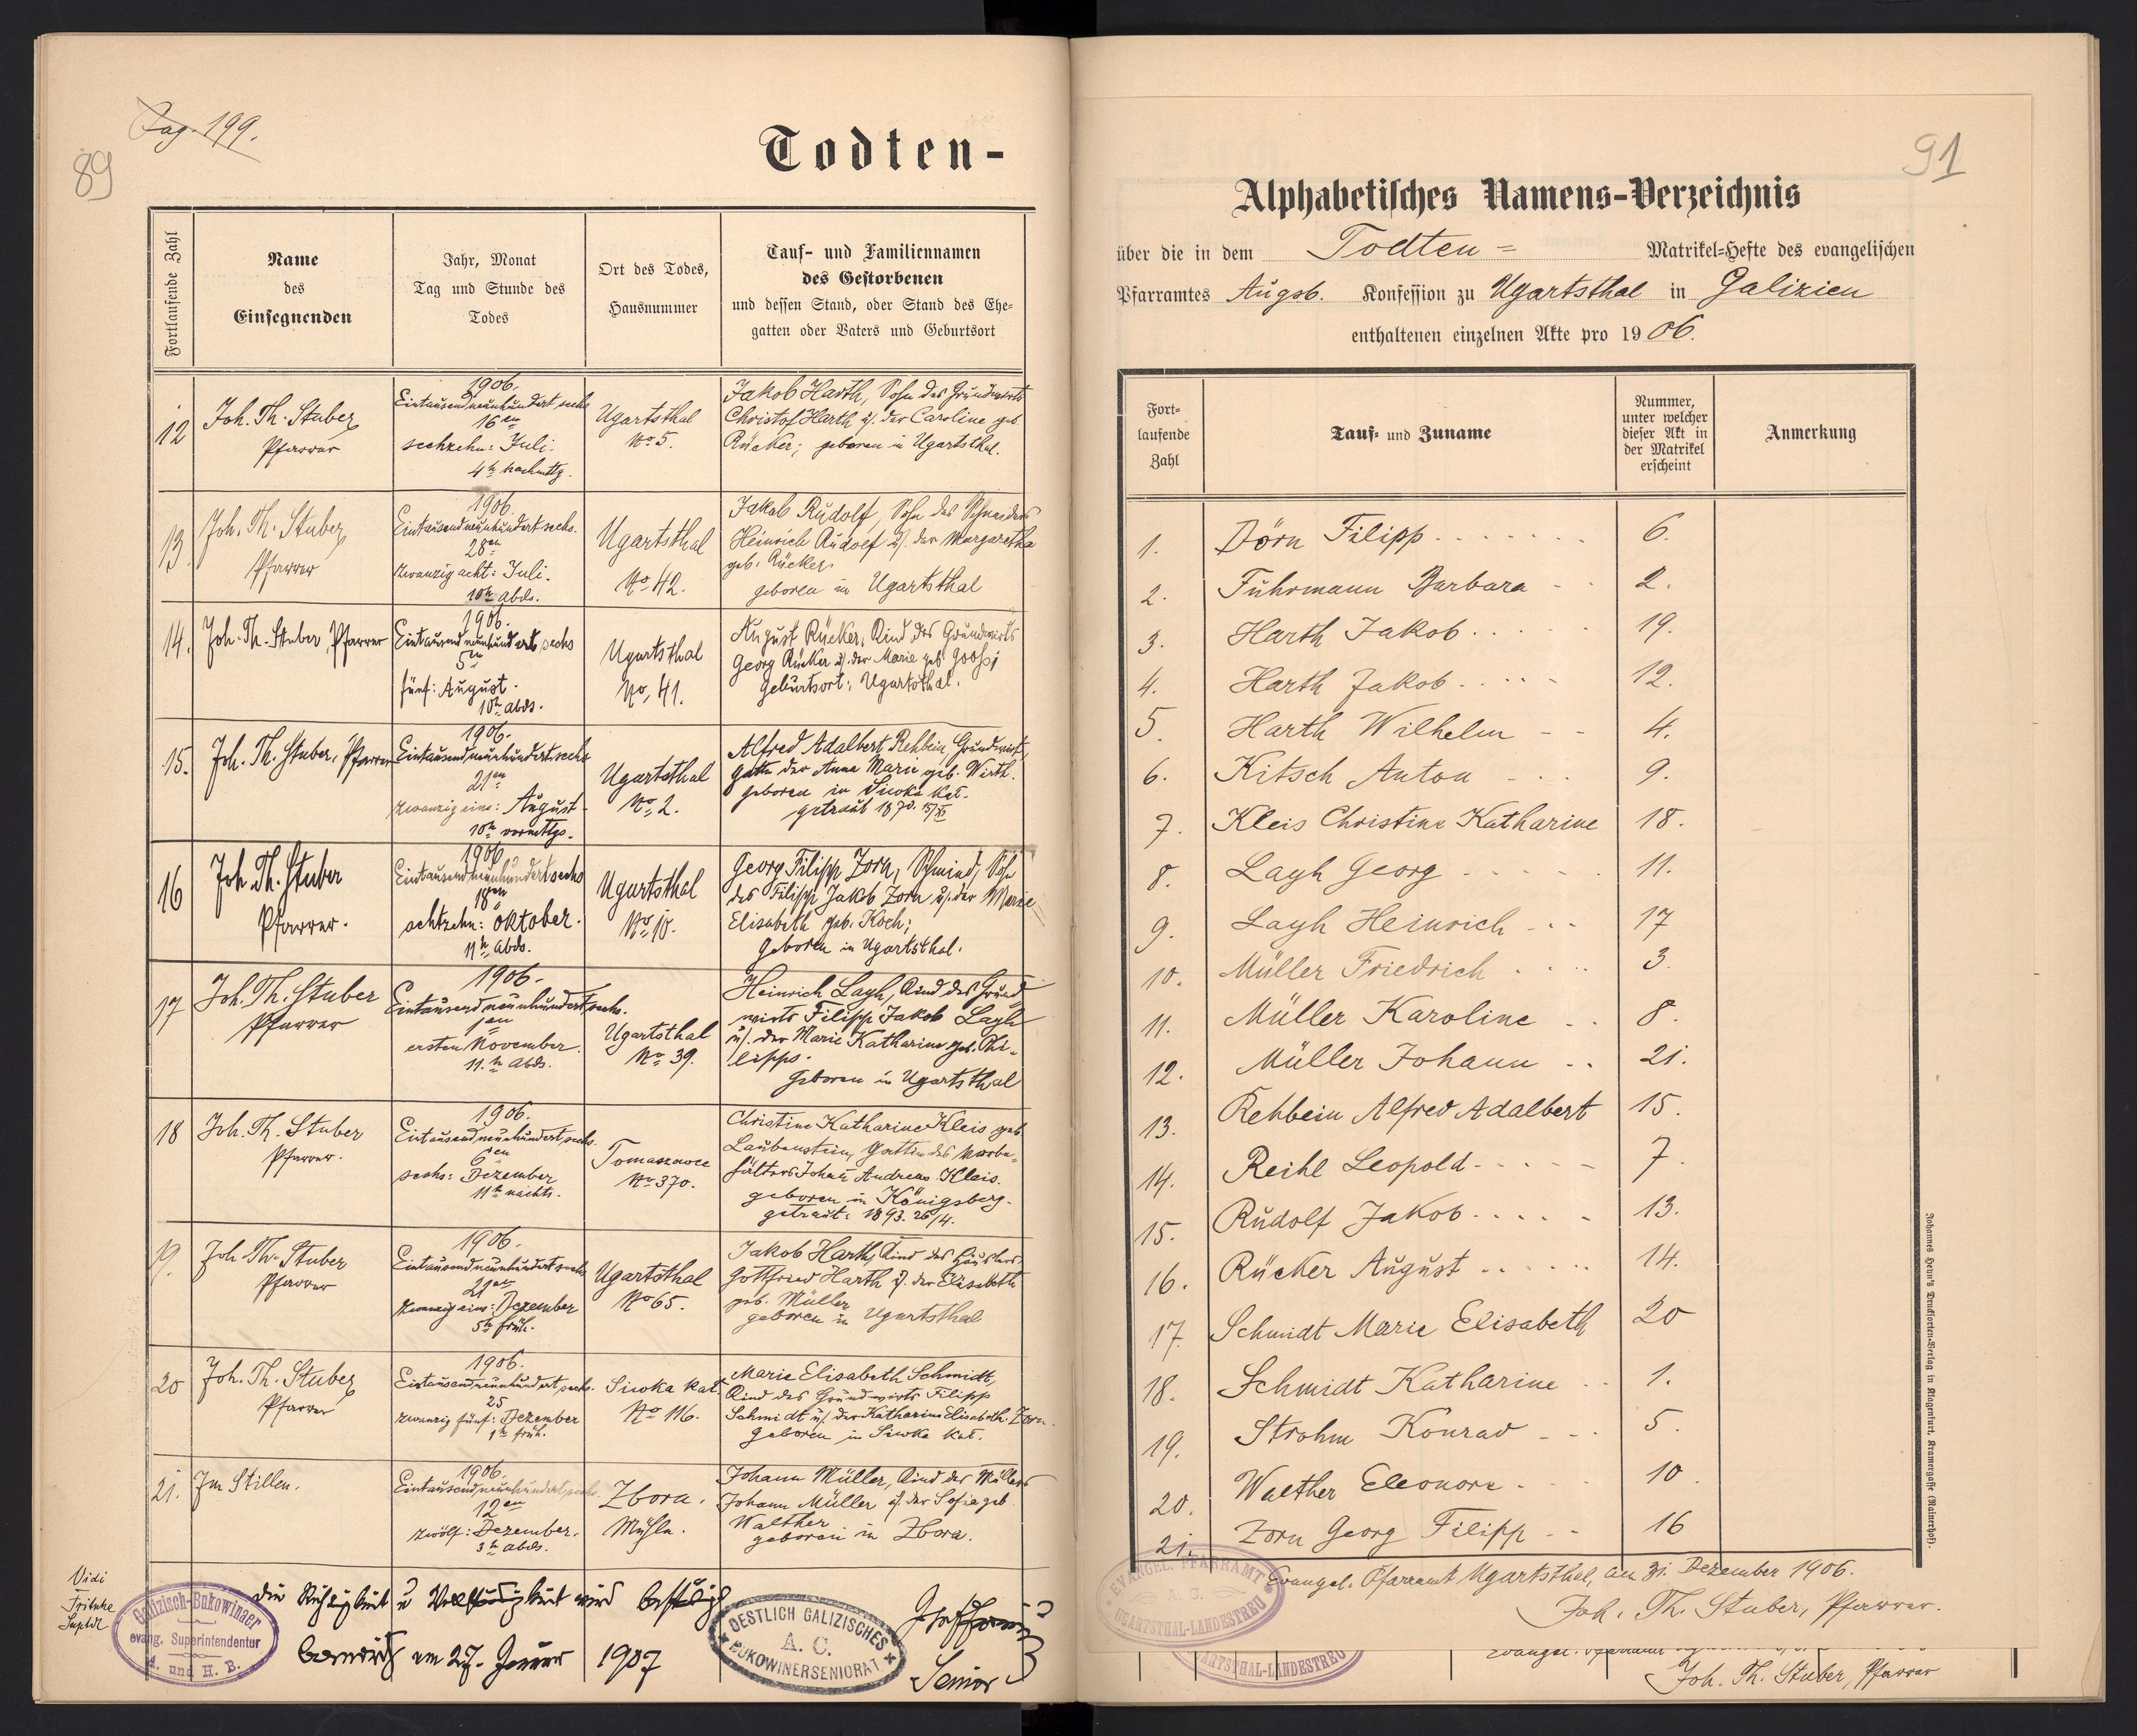 Pag. 199.
89
Todten-
Fortlaufende Zahl
Name
des
Einsegnenden
Jahr, Monat
Tag und Stunde des
Todes
Ort des Todes,
Hausnummer
Tauf- und Familiennamen
des Gestorbenen
und dessen Stand, oder Stand des Ehe-
gatten oder Vaters und Geburtsort
12
Joh. Th. Stuber
Pfarrer
1906.
Eintausendneunhundert sechs
16en
sechzehn: Juli.
4h nachmttg.
Ugartsthal
No 5.
Jakob Harth, Sohn des Grundwirts
Christof Harth u. der Caroline geb.
Rücker; geboren in Ugartsthal.
13
Joh. Th. Stuber
Pfarrer
1906.
Eintausendneunhundertsechs.
28en
zwanzig acht: Juli.
10h abds.
Ugartsthal
No 42.
Jakob Rudolf, Sohn des Schneiders
Heinrich Rudolf u. der Margaretha
geb. Rücker.
geboren in Ugartsthal
14.
Joh. Th. Stuber, Pfarrer
1906.
Eintausendneunhundert sechs
5en
fünf: August.
10h abds.
Ugartsthal
No, 41.
August Rücker, Kind des Grundwirts
Georg Rücker u. der Marie geb. Jooss;
Geburtsort: Ugartsthal.
15.
Joh. Th. Stuber, Pfarrer
1906.
Eintausendneunhundertsechs
21en
zwanzig eins: August
10h vormttgs.
Ugartsthal
No, 2.
Alfred Adalbert Rehbein, Grundwirt,
Gatte der Anna Marie geb. Wirth.
geboren in Siwka kat.
getraut 1870. 15/XI
16
Joh. Th. Stuber
Pfarrer.
1906
Eintausendneunhundertsechs
18en
achtzehn: Oktober.
11h abds.
Ugartsthal
No 10.
Georg Filipp Zorn, Schmied, Sohn
des Filipp Jakob Zorn u. der Marie
Elisabeth geb. Koch;
geboren in Ugartsthal.
17
Joh. Th. Stuber
Pfarrer
1906.
Eintausendneunhundertsechs.
1en
ersten November.
11.h abds.
Ugartsthal
No 39.
Heinrich Layh, Kind des Grund
wirts Filipp Jakob Layh
u. der Marie Katharine geb. Phi-
lipps.
Geboren in Ugartsthal
18
Joh. Th. Stuber
Pfarrer.
1906.
Eintausendneunhundertsechs.
6en
sechs: Dezember
11h nachts.
Tomaszowce
No 370.
Christine Katharine Kleis geb.
Laubenstein, Gattin des
Johann Andreas Kleis.
geboren in Königsberg.
getraut: 1893. 26/4.
19.
Joh. Th. Stuber
Pfarrer
1906.
Eintausendneunhundertsechs
21en
zwanzig eins: Dezember
5h früh.
Ugartsthal
No 65.
Jakob Harth, Kind des Häuslers
Gottfried Harth u. der Elisabeth
geb. Müller
geboren in Ugartsthal
20
Joh. Th. Stuber
Pfarrer
1906.
Eintausendneunhundertsechs.
25
zwanzig fünf: Dezember
1h früh.
Siwka kat.
No 116.
Marie Elisabeth Schmidt,
Kind des Grundwirts Filipp
Schmidt u. der Katharina Elisabeth Zorn.
geboren in Siwka kat.
21.
Im Stillen.
1906.
Eintausendneunhundertsechs.
12en
zwölf: Dezember.
3h abds.
Zbora.
Mühle.
Johann Müller, Kind des Müllers
Johann Müller u. der Sofie geb.
Walther
geboren in Zbora.
Vidi
Supldt
Galizisch-Bukowinaer
evang. Superintendentur
A. und H. B.
Die Richtigkeit u Vollständigkeit wird bestätigt
am 27. Januar 1907
OESTLICH GALIZISCHES
A. C.
BUKOWINERSENIORAT
Senior
91
Alphabetisches Namens-Verzeichnis
über die in dem Todten= Matrikel-Hefte des evangelischen
Pfarramtes Augsb. Konfession zu Ugartsthal in Galizien
enthaltenen einzelnen Akte pro 1906.
Fort-
laufende
Zahl
Tauf- und Zuname
Nummer,
unter welcher
dieser Akt in
der Matrikel
erscheint
Anmerkung
1. Dörn Filipp 6.
2. Fuhrmann Barbara 2.
3. Harth Jakob 19.
4. Harth Jakob 12.
5. Harth Wilhelm 4.
6. Kitsch Anton 9.
7. Kleis Christine Katharine 18.
8. Layh Georg 11.
9. Layh Heinrich 17
10. Müller Friedrich 3.
11. Müller Karoline 8.
12. Müller Johann 21.
13. Rehbein Alfred Adalbert 15.
14. Reihl Leopold 7.
15. Rudolf Jakob 13.
16. Rücker August 14.
17. Schmidt Marie Elisabeth 20
18. Schmidt Katharine 1.
19. Strohm Konrad 5.
20. Walther Eleonore 10.
21. Zorn Georg Filipp 16
EVANGEL. PFARRAMT
A. C.
UGARTSTHAL-LANDESTREU
Evangel. Pfarramt Ugartsthal, am 31. Dezember 1906.
Joh. Th. Stuber, Pfarrer.
Johannes Heyn's Drucksorten-Verlag in Klagenfurt, Kramergasse (Rainerhof).
ARTSTHAL-LANDESTREU
Joh. Th. Stuber, Pfarrer